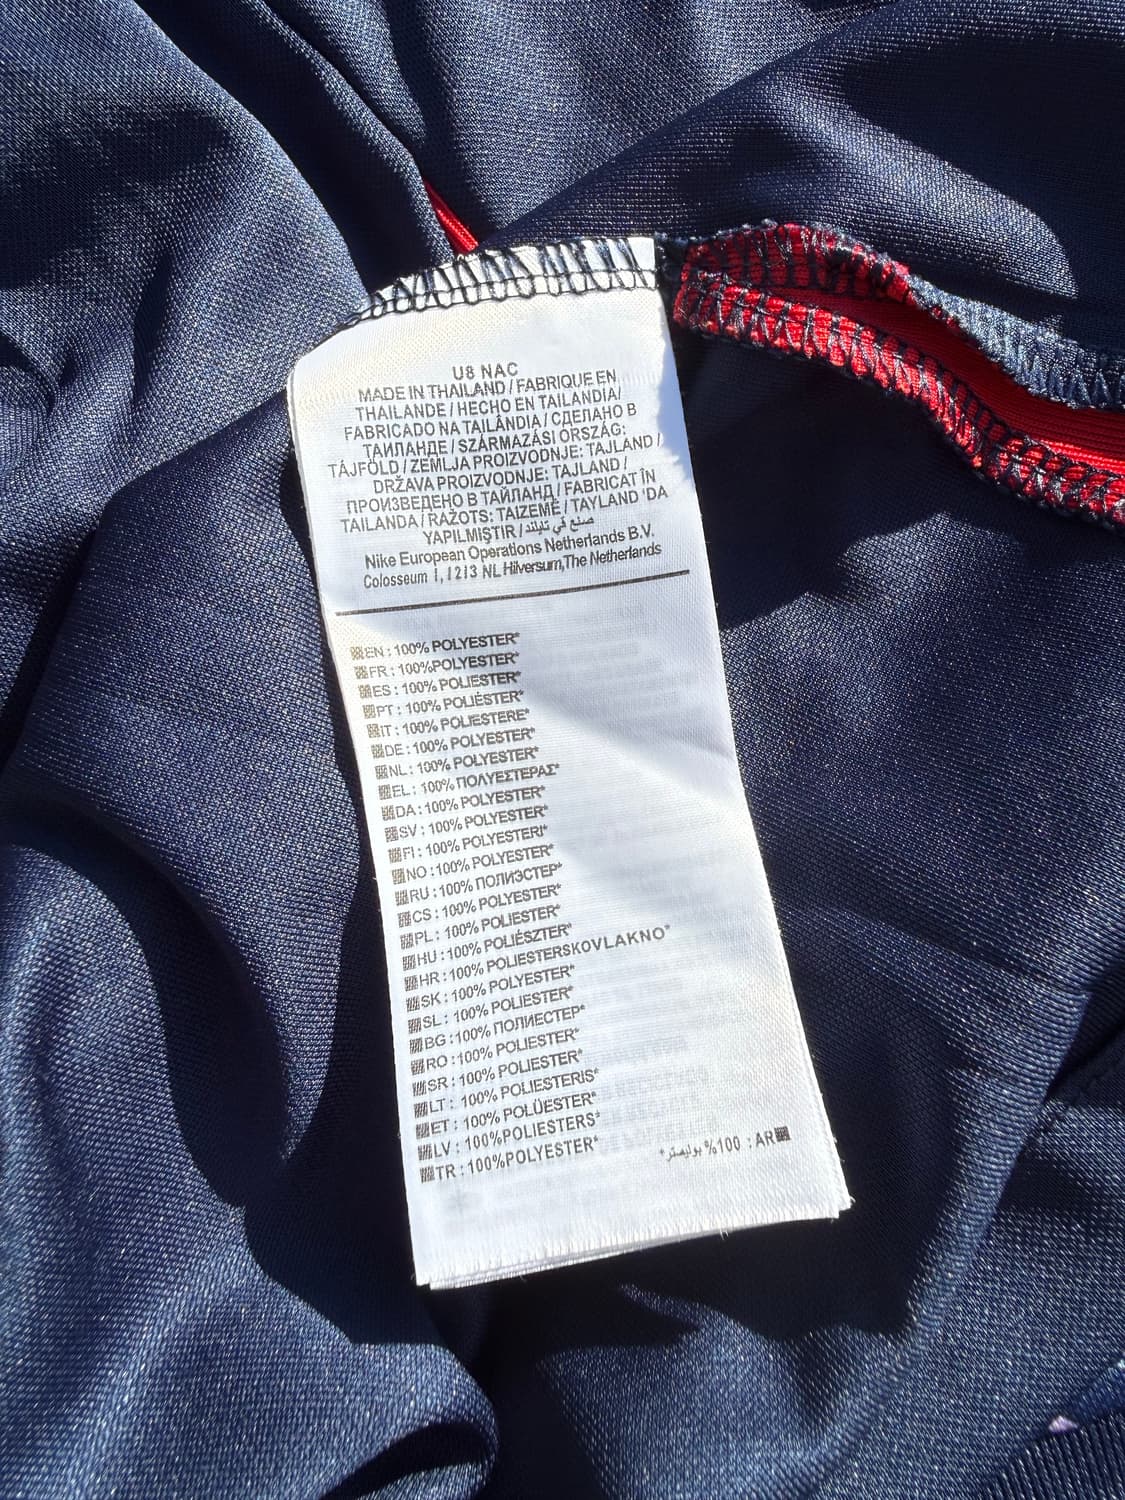 U8 NAC
MADE IN THAILAND / FABRIQUE EN
THAILANDE / HECHO EN TAILANDIA/
FABRICADO NA TAILÂNDIA / СДЕЛАНО В
ТАИЛАНДЕ / SZÁRMAZÁSI ORSZÁG:
TÁJFÖLD / ZEMLJA PROIZVODNJE: TAJLAND /
DRŽAVA PROIZVODNJE: TAJLAND /
ПРОИЗВЕДЕНО В ТАЙЛАНД / FABRICAT ÎN
TAILANDA / RAŽOTS: TAIZEME / TAYLAND 'DA
YAPILMIŞTIR / صنع في تيلند
Nike European Operations Netherlands B.V.
Colosseum 1, 1213 NL Hilversum,The Netherlands
EN : 100% POLYESTER*
FR : 100%POLYESTER*
ES : 100% POLIESTER*
PT : 100% POLIÉSTER*
IT : 100% POLIESTERE*
DE : 100% POLYESTER*
NL : 100% POLYESTER*
EL : 100% ΠΟΛΥΕΣΤΕΡΑΣ*
DA : 100% POLYESTER*
SV : 100% POLYESTER*
FI : 100% POLYESTERI*
NO : 100% POLYESTER*
RU : 100% ПОЛИЭСТЕР*
CS : 100% POLYESTER*
PL : 100% POLIESTER*
HU : 100% POLIÉSZTER*
HR : 100% POLIESTERSKOVLAKNO*
SK : 100% POLYESTER*
SL : 100% POLIESTER*
BG : 100% ПОЛИЕСТЕР*
RO : 100% POLIESTER*
SR : 100% POLIESTER*
LT : 100% POLIESTERIS*
ET : 100% POLÜESTER*
LV : 100%POLIESTERS*
TR : 100%POLYESTER*
AR : 100% بوليستر*